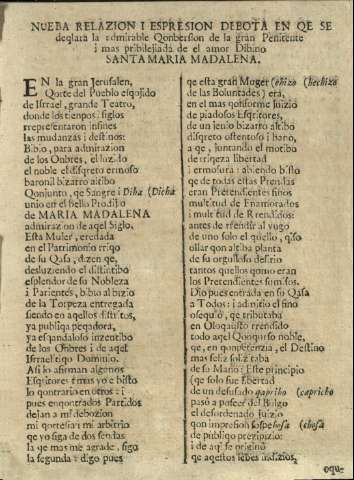 NUEBA RELAZION I ESPRESION DEBOTA EN QE SE
deqlara la admirable Qonbersion de la gran Penitente
i mas pribilejiada de el amor Dibino
SANTA MARIA MADALENA.
EN la gran Jerusalen,
Qorte del Pueblo esqojido
de Israel, grande Teatro,
donde los tienpos, siglos
rrepresentaron insines
las mudanzas i destinos:
Bibio, para admirazion
de los Onbres, el luzido
el noble el disqreto ermoso
baronil bizarro altibo
Qonjunto, qe Sangre i Diha (Dicha
unio en el bello Prodijio
de MARIA MADALENA
admirazion de aqel Siglo.
Esta Muler, eredada
en el Patrimonio rriqo
de su Qasa, dizen qe,
desluziendo el distintibo
esplendor de su Nobleza
i Parientes, bibio al bizio
de la Torpeza entregada
siendo en aqellos distritos,
ya publiqa peqadora,
ya esqandaloso inzentibo
de los Onbres i de aqel
Israelitiqo Dominio.
Asi lo afirman algunos
Esqritores i mas yo e bisto
lo qontrario en otros: i
pues enqontrados Partidos
dejan a mi debozion
mi qortesia i mi arbitrio
qe yo siga de dos sendas
la qe mas me agrade, sigo
la segunda: i digo pues
qe esta gran Moger (ehizo (hechizo
de las Boluntades) era,
en el mas qonforme Juizio
de piadosos Esqritores,
de un jenio bizarro altibo
disqreto ostentoso i bano,
a qe, juntando el motibo
de riqeza libertad
i ermosura: abiendo bisto
qe de todas estas Prendas
eran Pretendientes finos
multitud de Enamorados
i multitud de Rrendidos:
antes de rrendir al yugo
de uno solo el quello, qiso
ollar qon altiba planta
de su orgulloso destino
tantos quellos qomo eran
los Pretendientes sumisos.
Dio pues entrada en su Qasa
a Todos: i admitio el fino
osequio, qe tributaba
en Oloqausto rrendido
todo aqel Qonqurso noble,
qe, en qonpetenzia, el Destino
mas feliz solizitaba
de su Mano: Este prinzipio
(qe solo fue libertad
de un desusado qapriho (capricho
pasó a poseer del Bulgo
el desordenado Juizio
qon impresion sospehosa (chosa
de publiqo prezipizio:
i de aqi se originó
qe aqestos lebes indizios,
oque